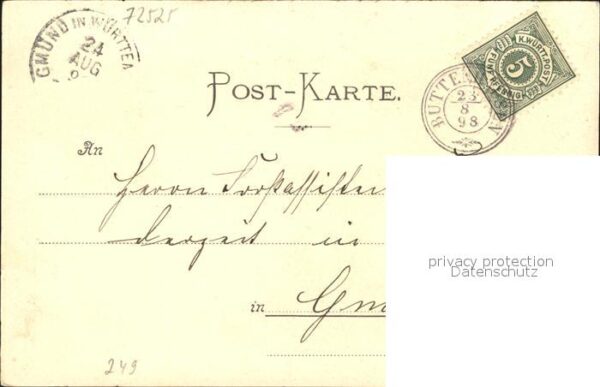 72525
GMÜND IN WÜRTTEM
24
AUG
K. WÜRTT. POST
FÜNF PFENNIG
5
BUTTEN
23
8
98
POST-KARTE.
An
Herrn
derzeit in
in Gm
privacy protection
Datenschutz
249